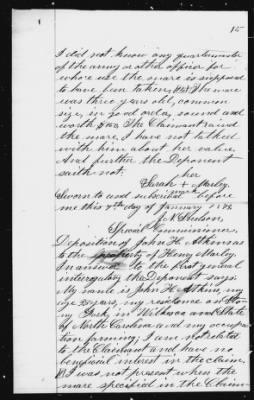 15
I did not know any quartermaster
of the army or other officer for
whose use the mare is supposed
to have been taken, The mare
was three years old, common
size, in good order, sound and
worth The Claimant raised
the mare, I have not talked
with him about her value,
And further the Deponent
saith not.
her
Sarah + Marley
mark
Sworn to and subscribed before
me this 7th day of January
Special Commissioner,
Deposition of John H. Atkins as
to the property of Henry Marley,
In answer to the first general
interrogatory the Deponent says
My name is John H Atkins, my
age years, my residence on
Fork, in Wilkes Co and State
of North Carolina and my occupa
tion farming; I am not related
to the Claimant and have no
beneficial interest in the claim,
I was not present when the
mare specified in the Claim